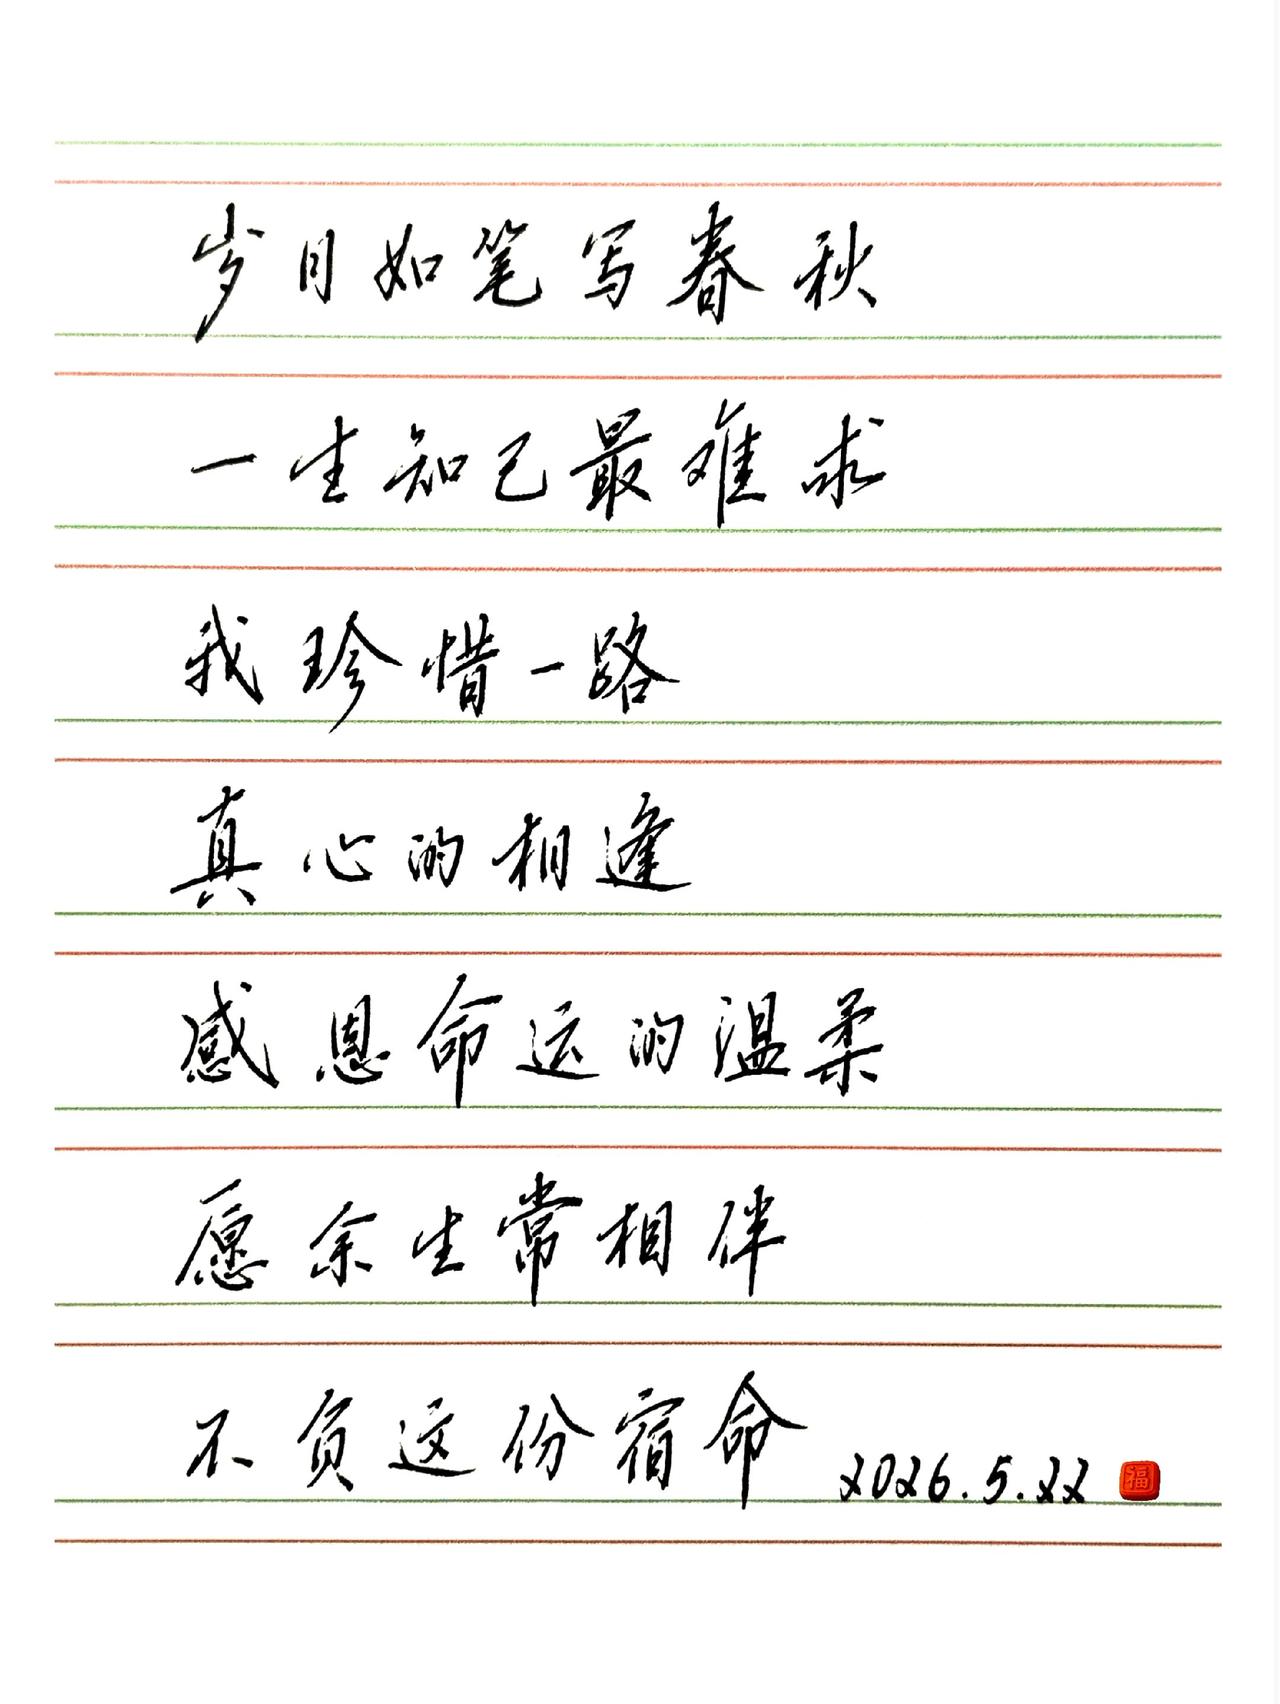 岁月如笔写春秋
一生知己最难求
我珍惜一路
真心的相逢
感恩命运的温柔
愿余生常相伴
不负这份宿命
2026.5.22 福